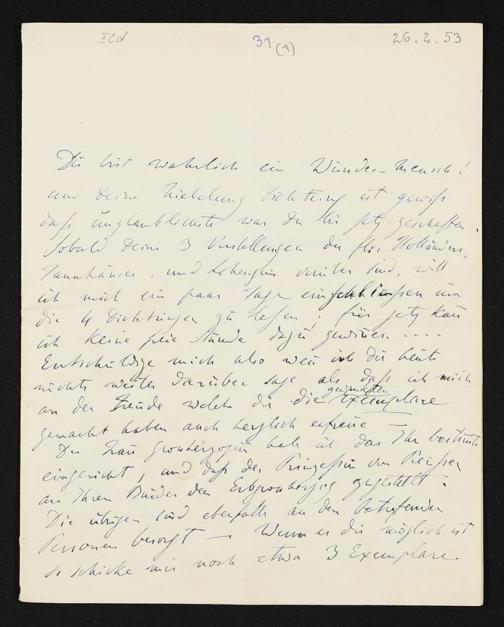 31 (1)
26.2.53
Du bist wahrlich ein Wunder-Mensch!
und deine Niebelung Dichtung ist gewiss
das unglaublichste was du bis jetz geschaffen.
Sobald deine 3 Vorstellungen des flieg Holländers,
Tannhäuser, und Lohengrin vorüber sind, will
ich mich ein paar Tage einschliessen um
die 4 Dichtungen zu lesen! für jetz kan
ich keine freie Stunde dazu gewinen ....
Entschuldige mich also wen ich dir heute
nichts weiter darüber sage als dass ich mich
an der Freude welche dir die gedruckten Exemplare
gemacht haben auch herzlich erfreue —
Der Frau Grossherzogin hab ich das Ihr bestimte
eingereicht, und das der Prinzessin von Preussen
an Ihren Bruder den Erbgrossherzog zugestellt.
Die übrigen sind ebenfalls an den betrefenden
Personen besorgt — Wenn es dir möglich ist
so schicke mir noch etwa 3 Exemplare